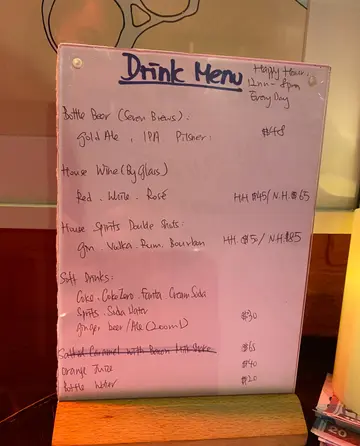 Drink Menu
Happy Hour.
12nn - 8pm
Every Day
Bottle Beer (Seven Brews).
Gold Ale, IPA. Pilsner. $48
House Wine (By Glass)
Red. White. Rosé HH $45/N.H. $65
House Spirits Double Shots:
Gin. Vodka. Rum. Bourbon HH. $5 / N.H $85
Soft Drinks:
Coke. Coke Zero. Fanta. Cream Soda
Sprits. Soda Water $30
Ginger beer/Ale (200ml)
Salted Caramel with Bacon Milk Shake $65
Orange Juice $40
Bottle Water $20
20